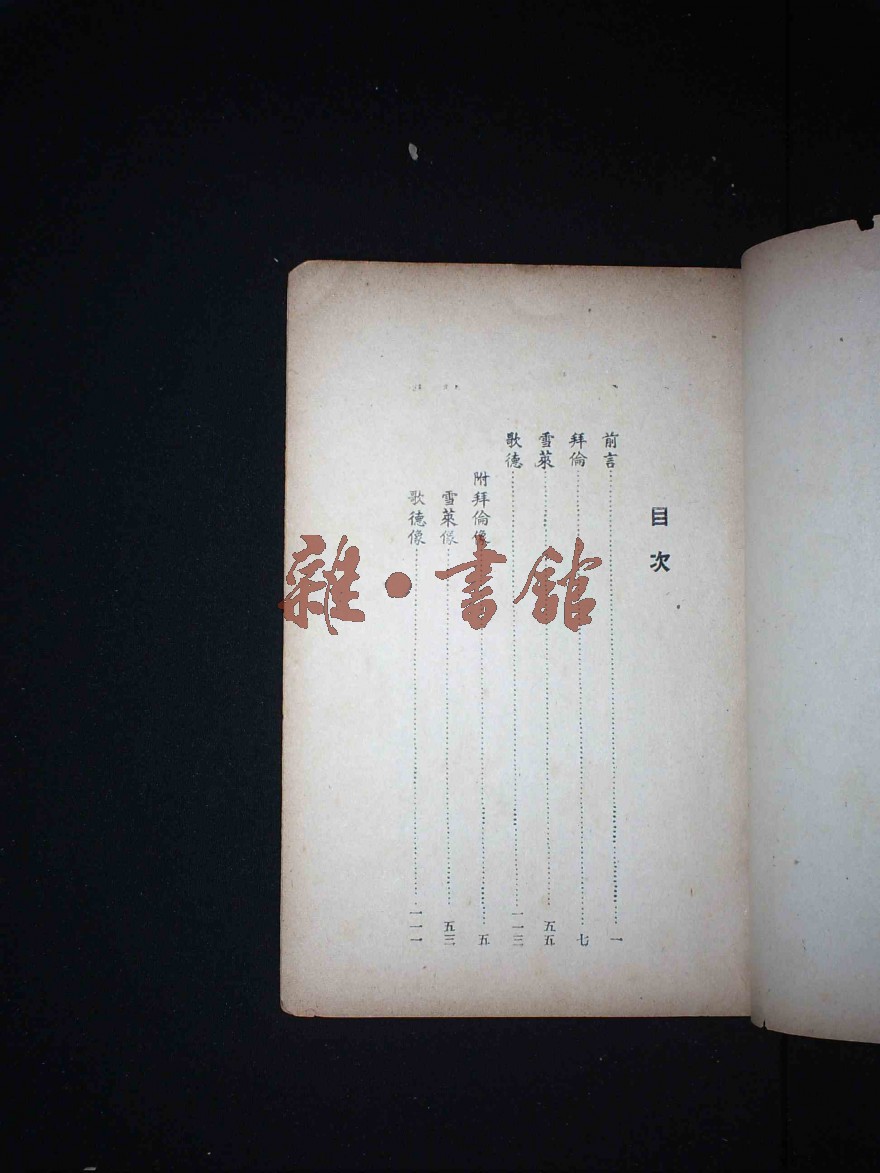 目次
前言……一
拜倫……七
雪萊……五五
歌德……一一三
附拜倫像……五
雪萊像……五三
歌德像……一一一
雜·書館